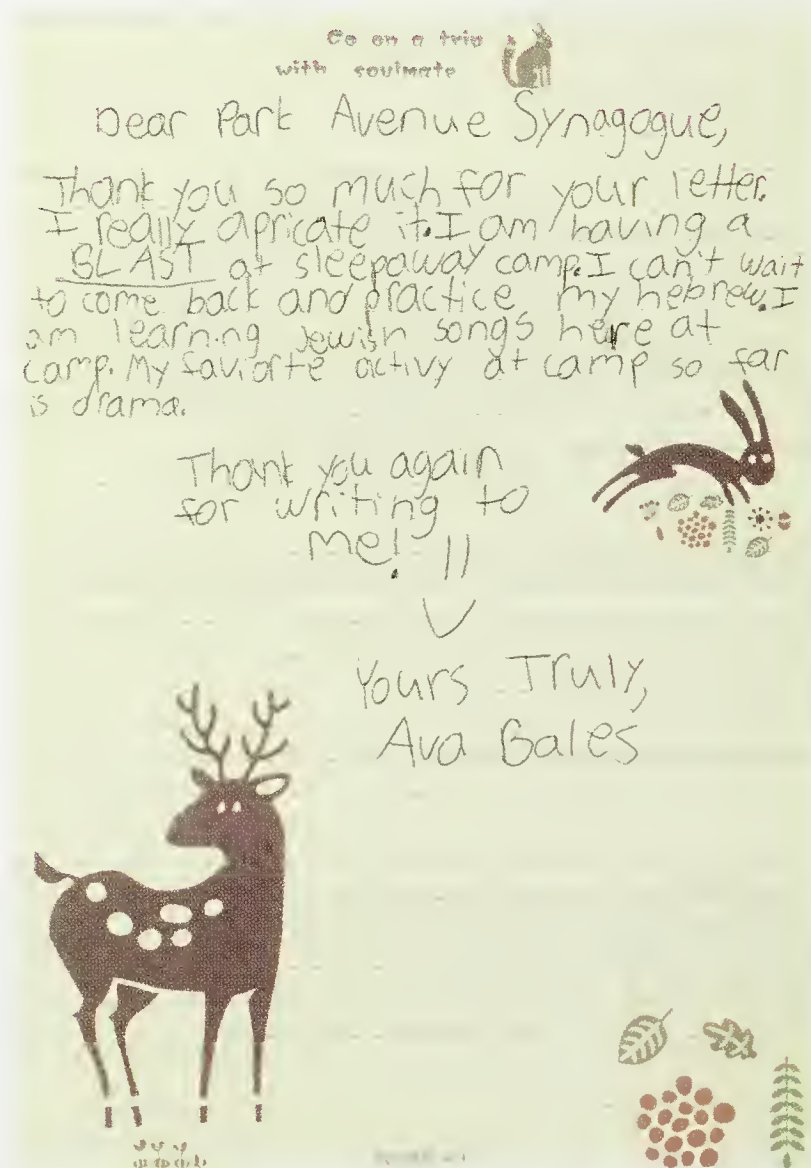 Go on a trip
with soulmate
Dear Park Avenue Synagogue,
Thank you so much for your letter.
I really apricate it. I am having a
BLAST at sleepaway camp. I can't wait
to come back and practice my hebrew. I
am learning Jewish songs here at
camp. My faviorte activy at camp so far
is drama.
Thank you again
for writing to
me!
Yours Truly,
Ava Gales